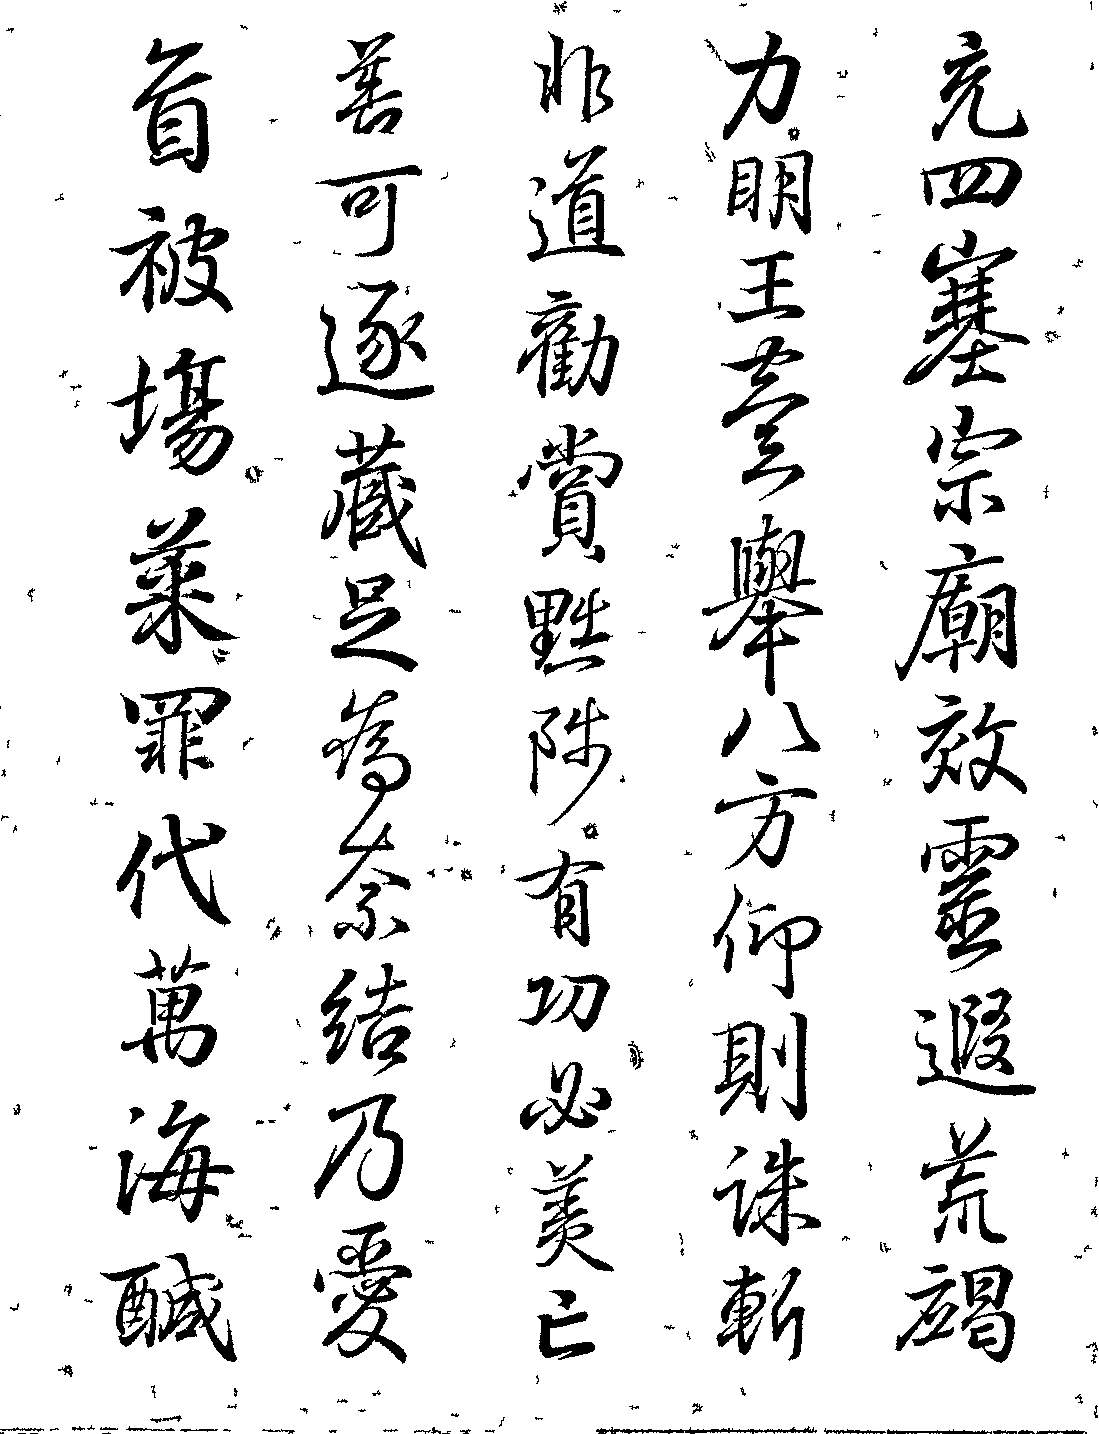 充四塞宗廟效靈遐荒竭
力明王臺舉八方仰則誅斬
非道勸賞黜陟有功必美亡
善可逐藏足為奈結乃愛
首被場菜罪代萬海鹹